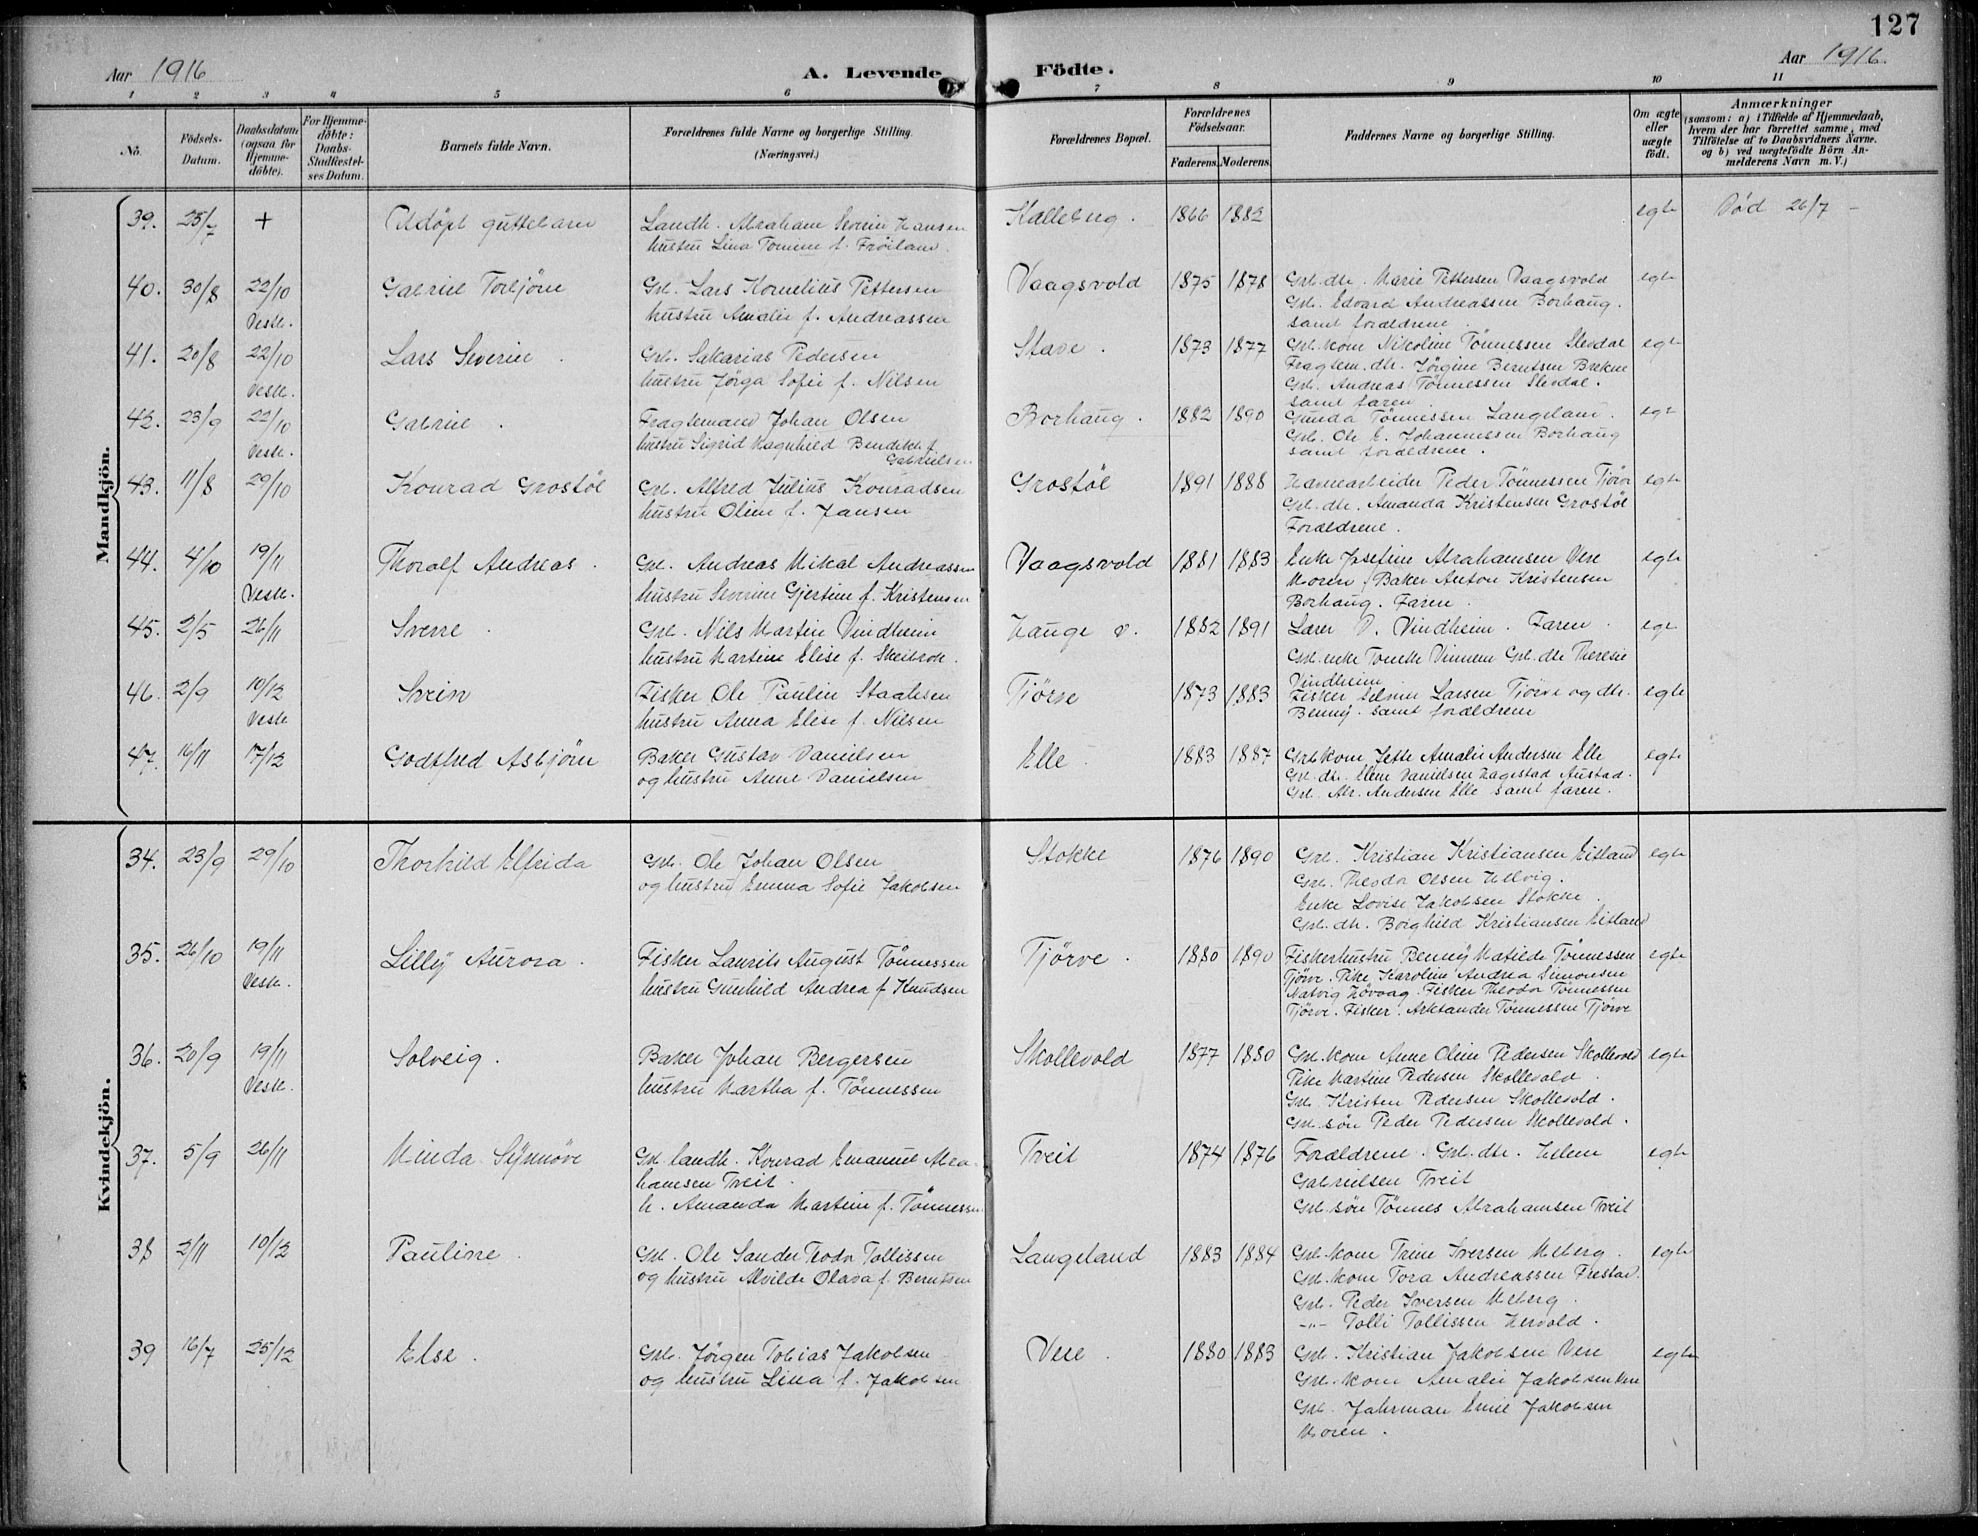 127
Aar 1916
A. Levende Födte.
Aar 1916.
1 2 3 4 5 6 7 8 9 10 11
No.
Födsels-Datum.
Daabsdatum (ogsaa for Hjemme-döbte).
For Hjemme-döbte: Daabs-Stadfæstel-ses Datum.
Barnets fulde Navn.
Forældrenes fulde Navne og borgerlige Stilling. (Næringsvei.)
Forældrenes Bopæl.
Forældrenes Födselsaar.
Faderens. Moderens.
Faddernes Navne og borgerlige Stilling.
Om ægte eller uægte födt.
Anmærkninger
(saasom: a) i Tilfælde af Hjemmedaab, hvem der har forrettet samme, med Tilföielse af to Daabsvidners Navne. og b) ved uægtefödte Börn An-melderens Navn m. V.)
Mandkjön.
39. 25/7 + Udöpt guttebarn
Landh. Abraham Severin Hansen
hustru Lina Tomine f. Fröiland
Kalleberg. 1866 1882 egte Död 26/7 –
40. 30/8 22/10 Vestk. Gabriel Torbjörn
Grb. Lars Kornelius Pettersen
hustru Amalie f. Andreassen
Vaagsvold 1875 1878
Grb.dtr. Marie Pettersen Vaagsvold
Grb. Edvard Andreassen Borhaug.
samt forældrene.
egte
41. 20/8 22/10 Vestk. Lars Severin.
Grb. Sakarias Pedersen
hustru Jörga Sofie f. Nilsen
Stave. 1873 1877
Grb.kone Nikoline Tönnessen Slevdal
Fragtem. dtr. Jörgine Berntsen Brekne
Grb. Andreas Tönnessen Slevdal.
samt faren.
egte
42. 23/9 22/10 Vestk. Gabriel.
Fragtemand Johan Olsen
hustru Sigrid Magnhild Bendikte f.
Gabrielsen
Borhaug. 1882 1890
Gunda Tönnessen Langeland.
Grb. Ole E. Johannessen Borhaug
samt forældrene.
egte
43. 11/8 29/10 Konrad Grostöl
Grb. Alfred Julius Konradsen
hustru Oline f. Jansen
Grostöl 1891 1888
Havnearbeider Peder Tönnessen Tjörve
Grb.dtr. Amanda Kristensen Grostöl
Forældrene.
egte
44. 4/10 19/11 Vestk. Thoralf Andreas.
Grb. Andreas Mikal Andreassen
hustru Severine Gjertine f. Kristensen
Vaagsvold 1881 1883
Enke Josefine Abrahamsen Vere
Moren. Baker Anton Kristensen
Borhaug. Faren.
egte
45. 2/5 26/11 Sverre.
Grb. Nils Martin Vindheim
hustru Martine Elise f. Skeibrok.
Hauge v. 1882 1891
Lærer V. Vindheim. Faren.
Grb.enke Tomine Vinnem Grb.dtr. Theresie
Vindheim
egte
46. 2/9 10/12 Vestk. Svein
Fisker Ole Paulin Staalesen
hustru Anna Elise f. Nilsen
Tjörve 1873 1883
Fisker Selmer Larsen Tjörve og dtr.
Benny. samt forældrene
egte
47. 16/11 17/12 Godtfred Asbjörn
Baker Gustav Danielsen
og hustru Anne Danielsen
Elle. 1883 1887
Grb kone Jette Amalie Andersen Elle
Grb.dtr. Elene Danielsen Hagestad Austad.
Grb. Abr. Andersen Elle samt faren.
egte
Kvindekjön.
34. 23/9 29/10 Thorhild Elfrida
Grb. Ole Johan Olsen
og hustru Emma Sofie Jakobsen
Stokke 1876 1890
Grb. Kristian Kristiansen Eitland
Grb. Theodor Olsen Helvig.
Enke Lovise Jakobsen Stokke.
Grb.dtr. Borghild Kristiansen Eitland
egte
35. 26/10 19/11 Vestk. Lilly Aurora.
Fisker Laurits August Tönnessen
hustru Gunhild Andrea f. Knudsen
Tjörve. 1880 1890
Fiskerhustru Benny Matilde Tönnessen
Tjörve. Pike Karoline Andrea Simonsen
Matvig Hövaag. Fisker Theodor Tönnessen
Tjörve. Fisker. Arktander Tönnessen Tjörve
egte
36. 20/9 19/11 Vestk. Solveig.
Baker Johan Bergersen
hustru Martha f. Tönnessen
Skollevold 1877 1880
Grb.kone Anne Oline Pedersen Skollevold
Pike Martine Pedersen Skollevold.
Grb. Kristen Pedersen Skollevold.
Grb.sön Peder Pedersen Skollevold.
egte
37. 5/9 26/11 Minda Synnöve
Grb. landh. Konrad Emanuel Abra-
hamsen Treit.
h. Amanda Martine f. Tönnessen
Treit 1874 1876
Forældrene. Grb.dtr. Helene
Gabrielsen Treit
Grb.sön Tönnes Abrahamsen Treit
egte
38 2/11 10/12 Pauline.
Grb. Ole Sander Teodor Tollissen
og hustru Alvilde Olava f. Berntsen
Langeland 1883 1884
Grb.kone Trine Iversen Meberg.
Grb.kone Tora Andreassen Frestad.
Grb. Peder Iversen Meberg.
–"– Tolli Tollissen Hervold.
egte
39 16/7 25/12 Else.
Grb. Jörgen Tobias Jakobsen
og hustru Lina f. Jakobsen
Vere. 1880 1883
Grb. Kristian Jakobsen Vere
Grb.kone Amalie Jakobsen Vere
Grb. Jahrman Emil Jakobsen
Moren.
egte